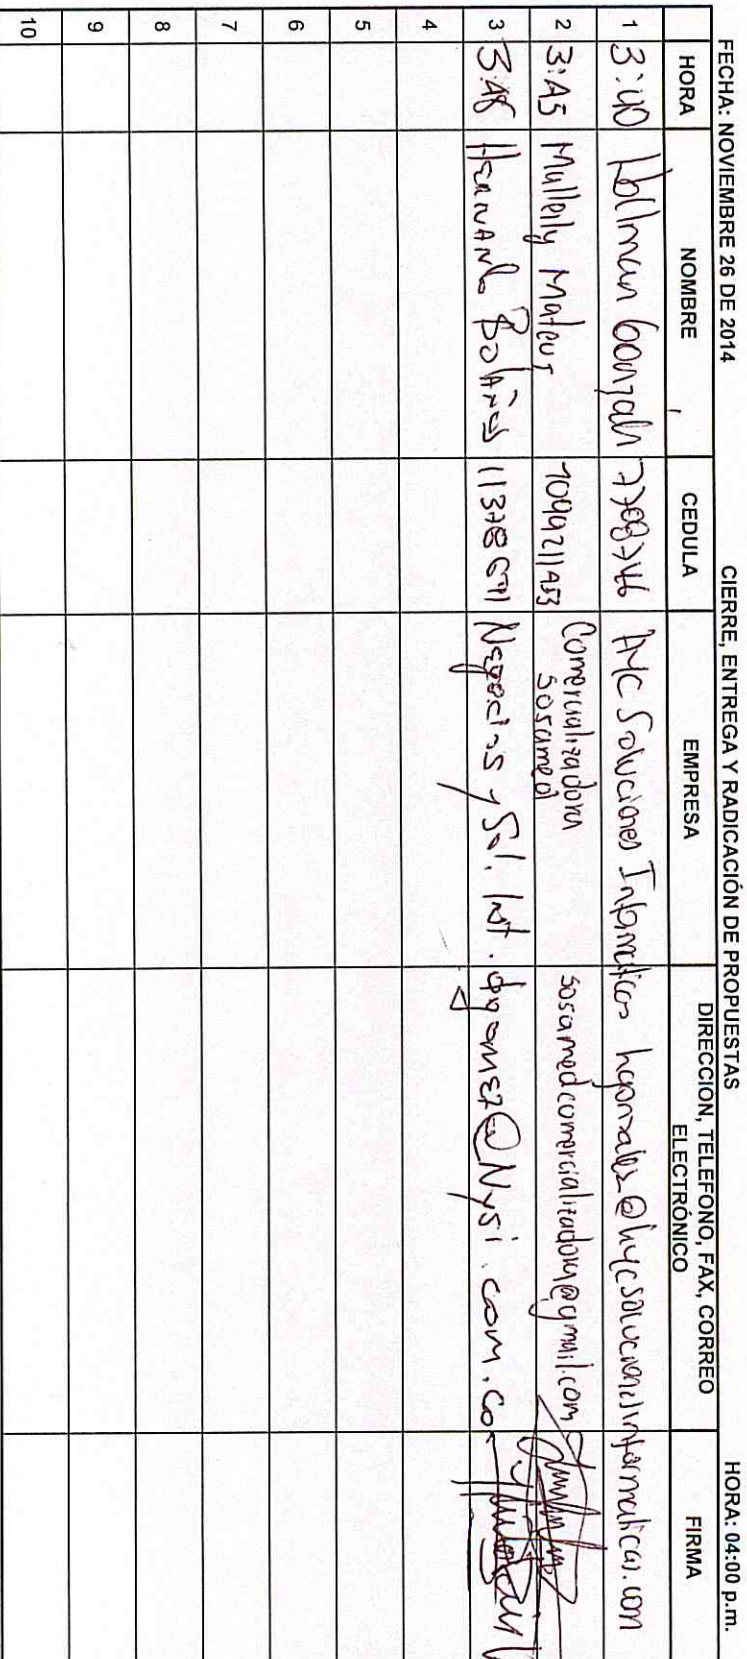 FECHA: NOVIEMBRE 26 DE 2014 CIERRE, ENTREGA Y RADICACIÓN DE PROPUESTAS HORA: 04:00 p.m.
HORA NOMBRE CEDULA EMPRESA DIRECCIÓN, TELEFONO, FAX, CORREO ELECTRÓNICO FIRMA
1 3:40 Hollman 7708746 HYC Soluciones Informaticas
2 3:45 Mateus 1099211453 Comercializadora Sosamed sosamedcomercializadora@gmail.com
3 3:48 Hernando Bolaños 11378671 Negocios y Sol. Int. dgomez@Nysi.com.co
4
5
6
7
8
9
10